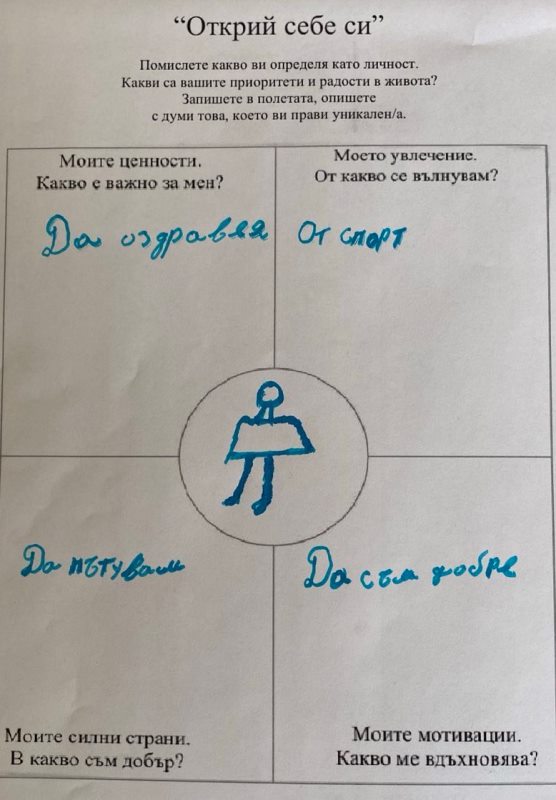 “Открий себе си”
Помислете какво ви определя като личност.
Какви са вашите приоритети и радости в живота?
Запишете в полетата, опишете
с думи това, което ви прави уникален/а.
Моите ценности.
Какво е важно за мен?
Да оздравея
Моето увлечение.
От какво се вълнувам?
От спорт
Да пътувам
Моите силни страни.
В какво съм добър?
Да съм добре
Моите мотивации.
Какво ме вдъхновява?